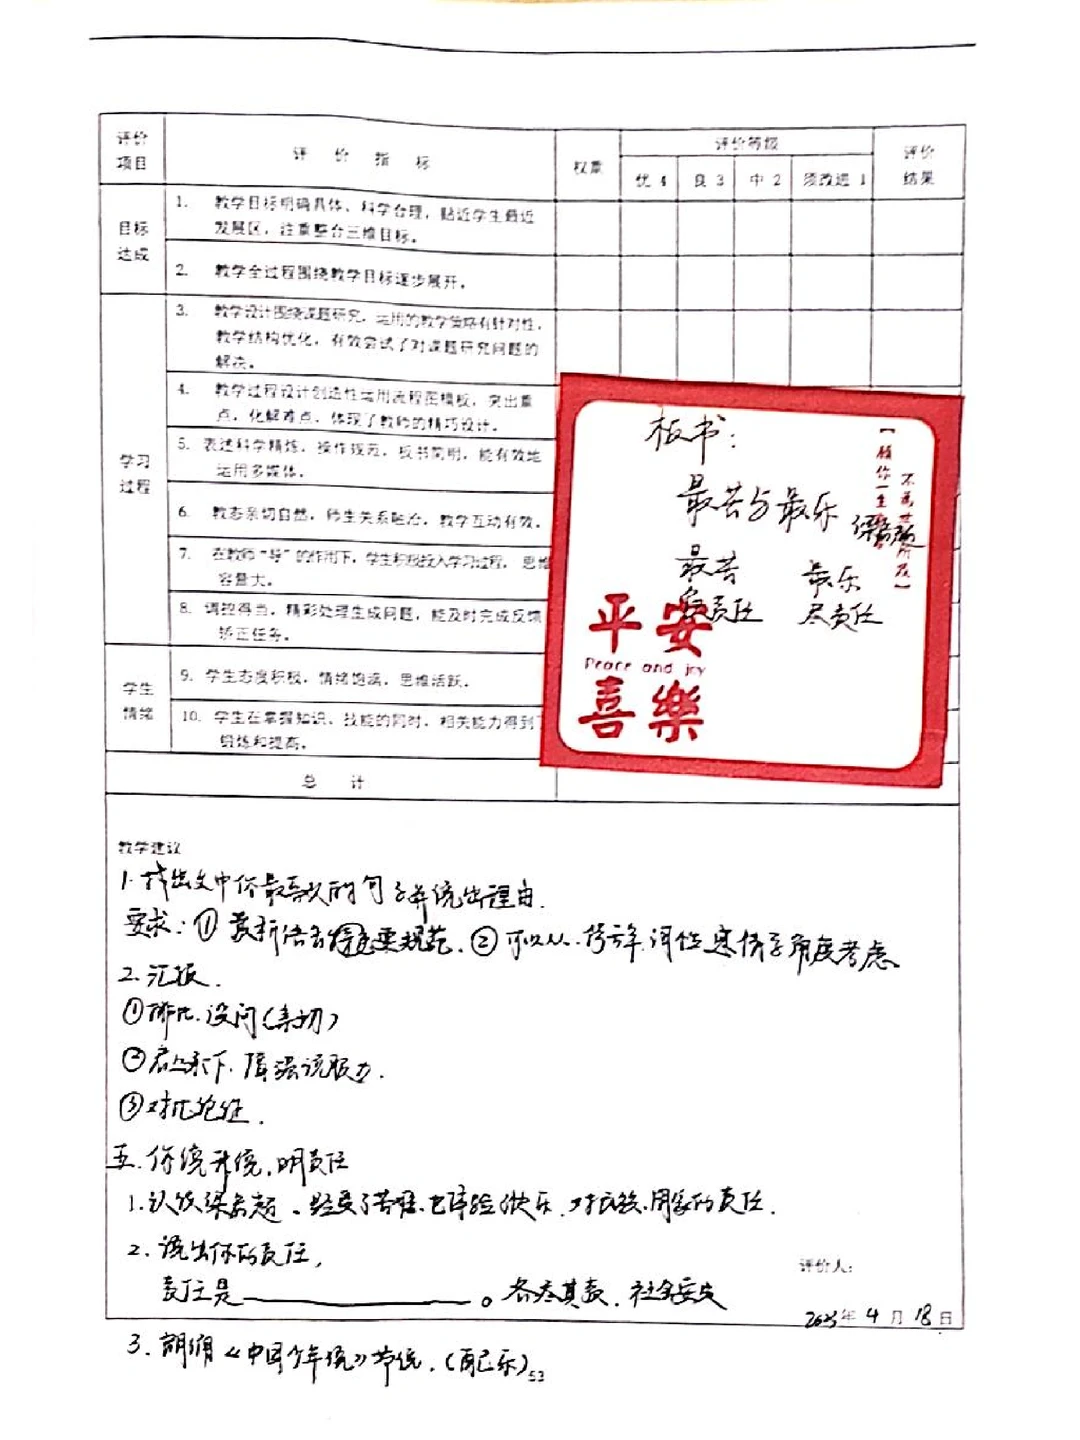 评价项目
评价指标
权重
评价等级
优 4
良 3
中 2
须改进 1
评价结果
目标达成
1. 教学目标明确具体、科学合理，贴近学生最近
发展区，注重整合三维目标。
2. 教学全过程围绕教学目标逐步展开。
学习过程
3. 教学设计围绕课题研究，运用的教学策略有针对性，
教学结构优化，有效尝试了对课题研究问题的
解决。
4. 教学过程设计创造性运用流程图模板，突出重
点，化解难点，体现了教师的精巧设计。
5. 表述科学精炼，操作规范，板书简明，能有效地
运用多媒体。
6. 教态亲切自然，师生关系融洽，教学互动有效。
7. 在教师“导”的作用下，学生积极投入学习过程，思维
容量大。
8. 调控得当，精彩处理生成问题，能及时完成反馈
矫正任务。
学生情绪
9. 学生态度积极，情绪饱满，思维活跃。
10. 学生在掌握知识、技能的同时，相关能力得到了
锻炼和提高。
总计
板书：
最苦与最乐
梁启超
最苦 最乐
责任 尽责任
【愿你一生
不为世所及】
平安
Peace and joy
喜樂
教学建议
1. 找出文中你最喜欢的句子并说出理由.
要求：① 赏析语言要规范. ② 可以从.修辞.词性.感情等角度考虑
2. 汇报.
①排比.设问(亲切)
② 增强说服力.
③对比论证.
五. 你说我说,明责任
1.认识梁启超、经受了苦难.也体验快乐.对民族.国家的责任.
2. 说出你的责任,
责任是 。各尽其责.社会安定
评价人：
2023年 4 月 18 日
3. 朗诵《中国少年说》节选.(配乐)
53